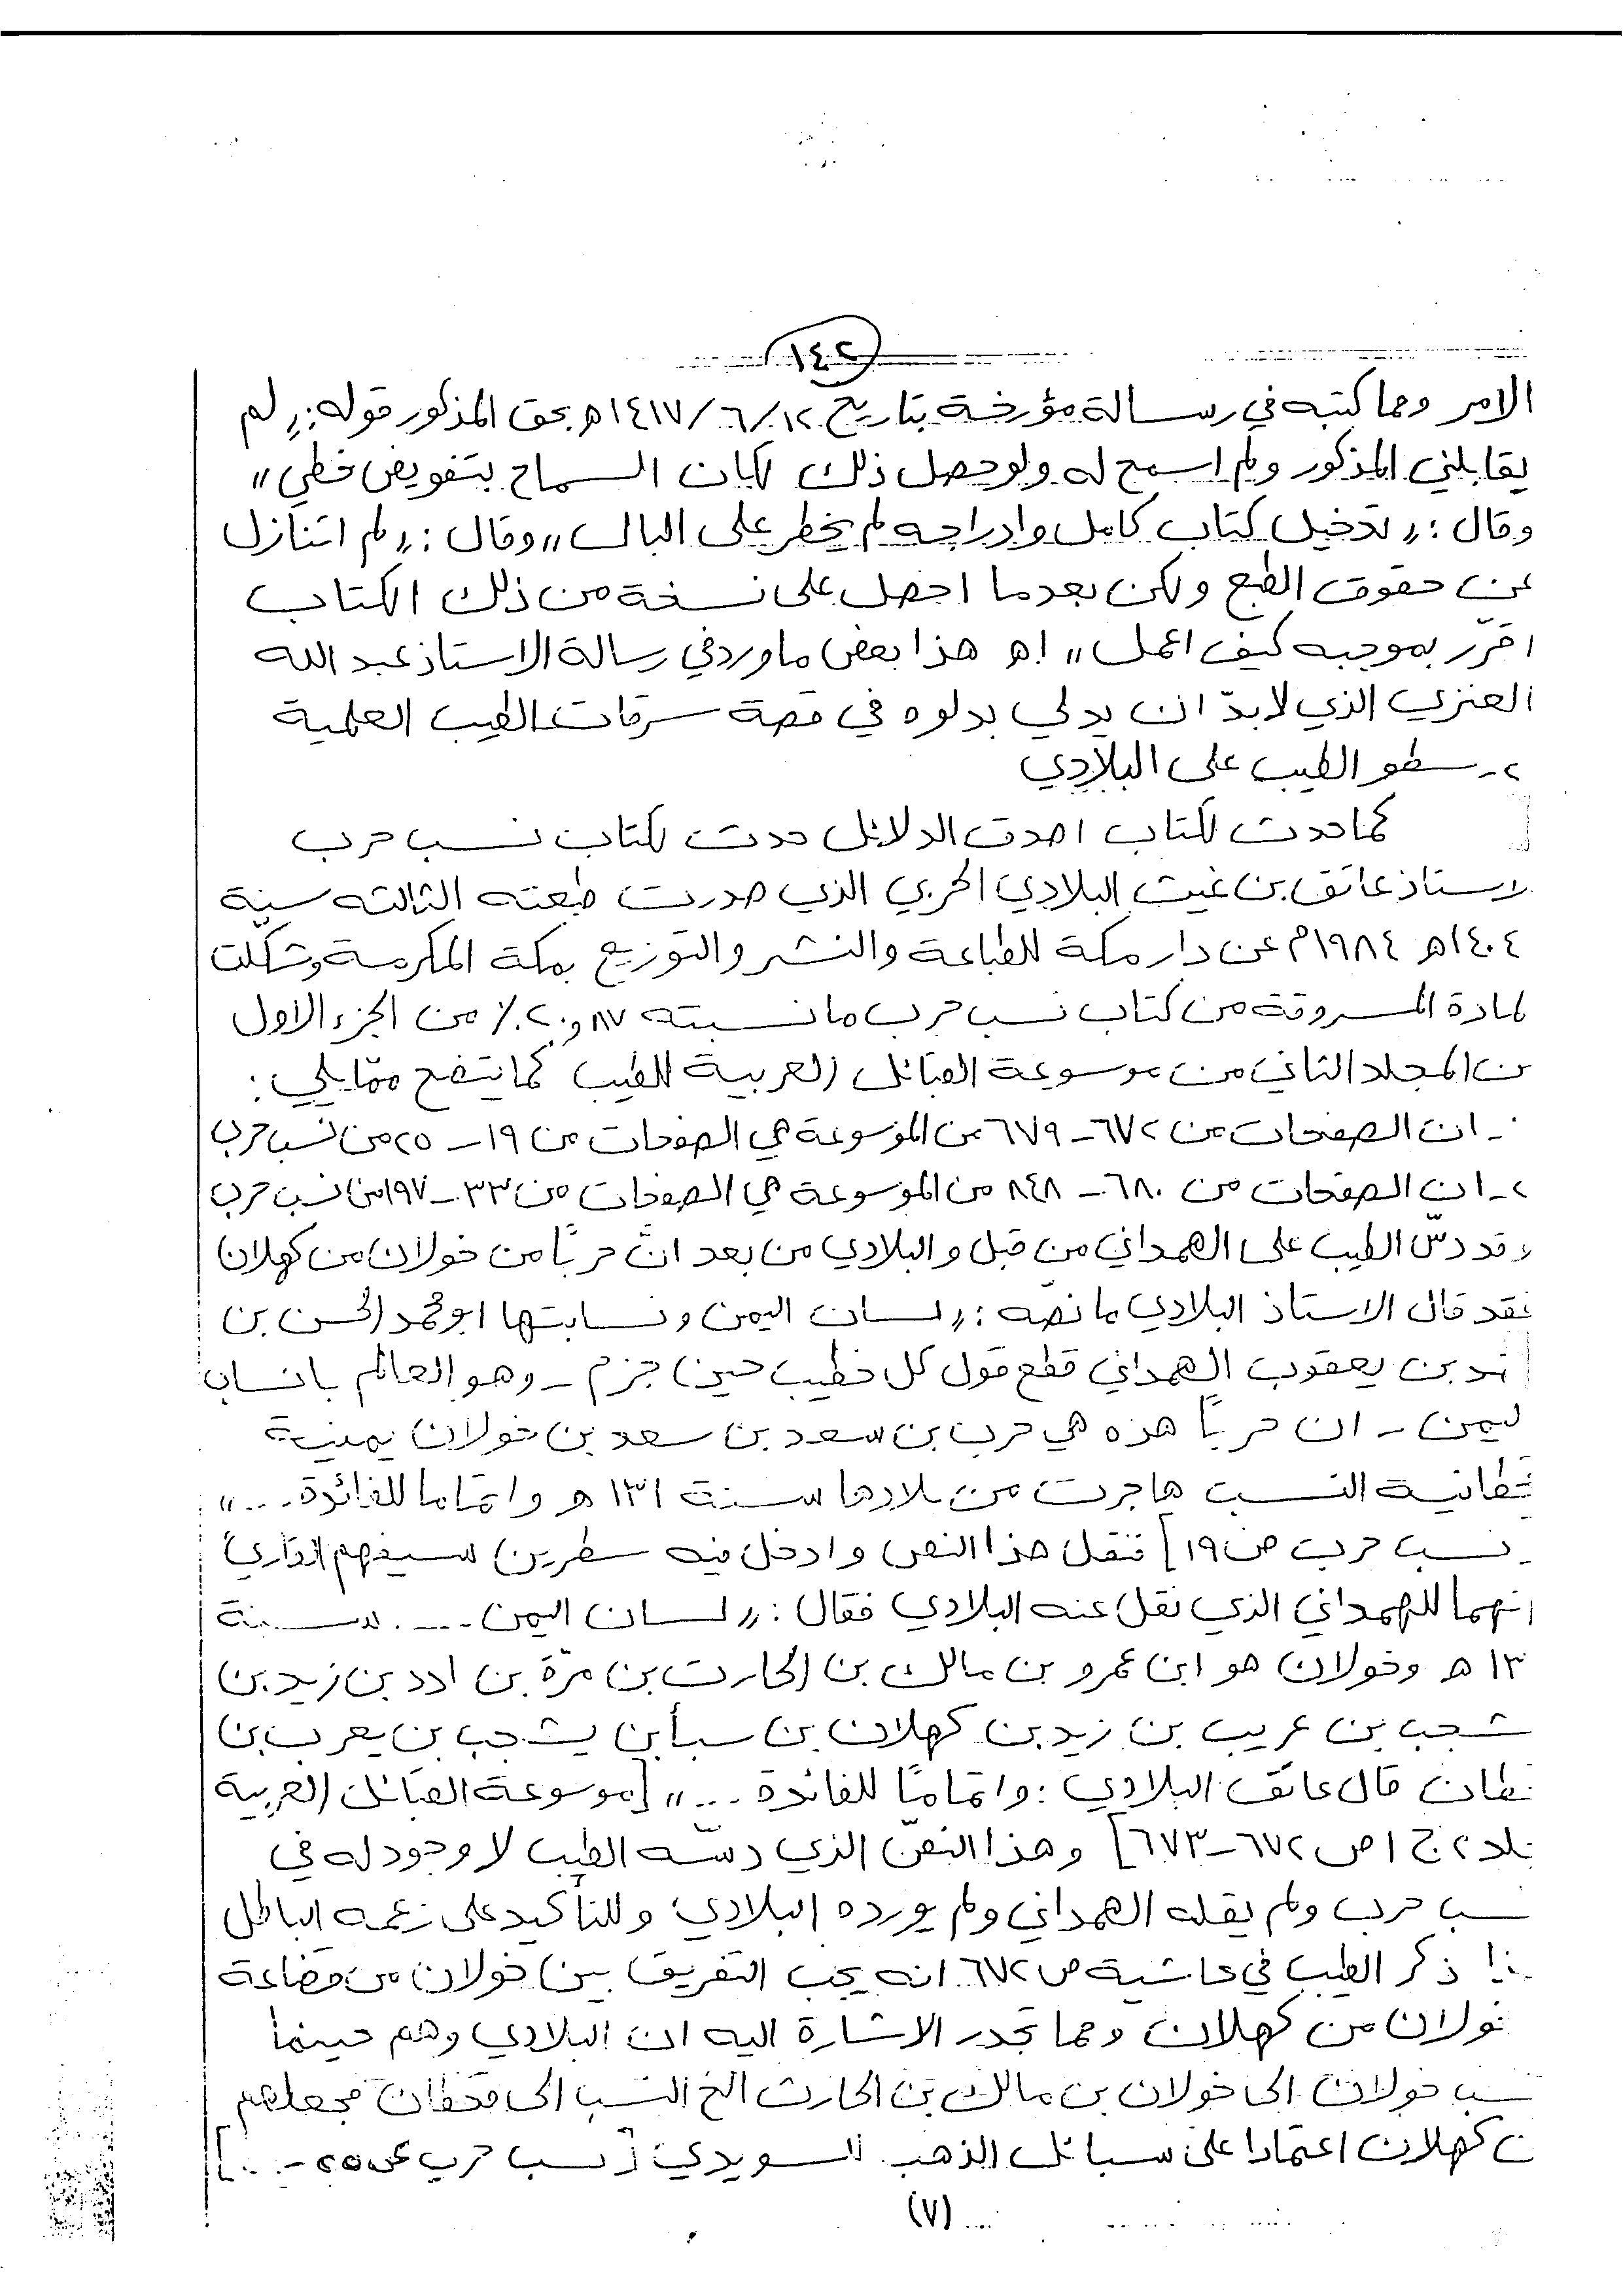 ١٤٢
الامر ومما كتبه في رسالة مؤرخة بتاريخ ١٤١٧/٦/١٢ه بحق المذكور قوله: «لم
يقابلني المذكور ولم اسمح له ولو حصل ذلك لكان السماح بتفويض خطي»
وقال: «تدخيل كتاب كامل وادراجه لم يخطر على البال» وقال: «لم اتنازل
عن حقوق الطبع ولكن بعدما احصل على نسخة من ذلك الكتاب
اقرّر بموجبه كيف اعمل» اه هذا بعض ما ورد في رسالة الاستاذ عبد الله
العنزي الذي لابدّ ان يدلي بدلوه في قصة سرقات الطيب العلمية
٢- سطو الطيب على البلادي
كما حدث لكتاب اصدق الدلائل حدث لكتاب نسب حرب
لاستاذ عاتق بن غيث البلادي الحربي الذي صدرت طبعته الثالثه سنة
١٤٠٤ه ١٩٨٤م عن دار مكة للطباعة والنشر والتوزيع بمكة المكرمة وشكلت
لمادة المسروقة من كتاب نسب حرب ما نسبته ٢٠,٨٧٪ من الجزء الاول
من المجلد الثاني من موسوعة القبائل العربية للطيب كما يتضح ممّا يلي:
- ان الصفحات من ٦٧٢-٦٧٩ من الموسوعة هي الصفحات من ١٩-٢٥ من نسب حرب
٢- ان الصفحات من ٦٨٠-٨٤٨ من الموسوعة هي الصفحات من ٣٣-١٩٧ من نسب حرب
وقد دسّ الطيب على الهمداني من قبل والبلادي من بعد انّ حربًا من خولان من كهلان
فقد قال الاستاذ البلادي ما نصّه: «لسان اليمن ونسابتها ابو محمد الحسن بن
احمد بن يعقوب الهمداني قطع قول كل خطيب حين جزم - وهو العالم بانساب
ليمن - ان حربًا هذه هي حرب بن سعد بن سعد بن خولان يمنية
قحطانية النسب هاجرت من بلادها سنة ١٣١ه واتماما للفائدة...»
نسب حرب ص ١٩] فنقل هذا النص وادخل فيه سطرين سيفهم القاريء
انهما للهمداني الذي نقل عنه البلادي فقال: «لسان اليمن .... سنة
١٣ه وخولان هو ابن عمرو بن مالك بن الحارث بن مرّة بن ادد بن زيد بن
شجب بن عريب بن زيد بن كهلان بن سبأ بن يشجب بن يعرب بن
قحطان قال عاتق البلادي: واتمامًا للفائدة ...» [موسوعة القبائل العربية
جلد ٢ ج ١ ص ٦٧٢-٦٧٣] وهذا النصّ الذي دسّه الطيب لا وجود له في
نسب حرب ولم يقله الهمداني ولم يورده البلادي وللتأكيد على زعمه الباطل
هذا ذكر الطيب في حاشية ص ٦٧٢ انه يجب التفريق بين خولان من قضاعة
خولان من كهلان ومما تجدر الاشارة اليه ان البلادي وهم حينما
نسب خولان الى خولان بن مالك بن الحارث الخ النسب الى قحطان فجعلهم
من كهلان اعتمادا على سبائك الذهب للسويدي [نسب حرب ص ٢٥-...]
(٧)